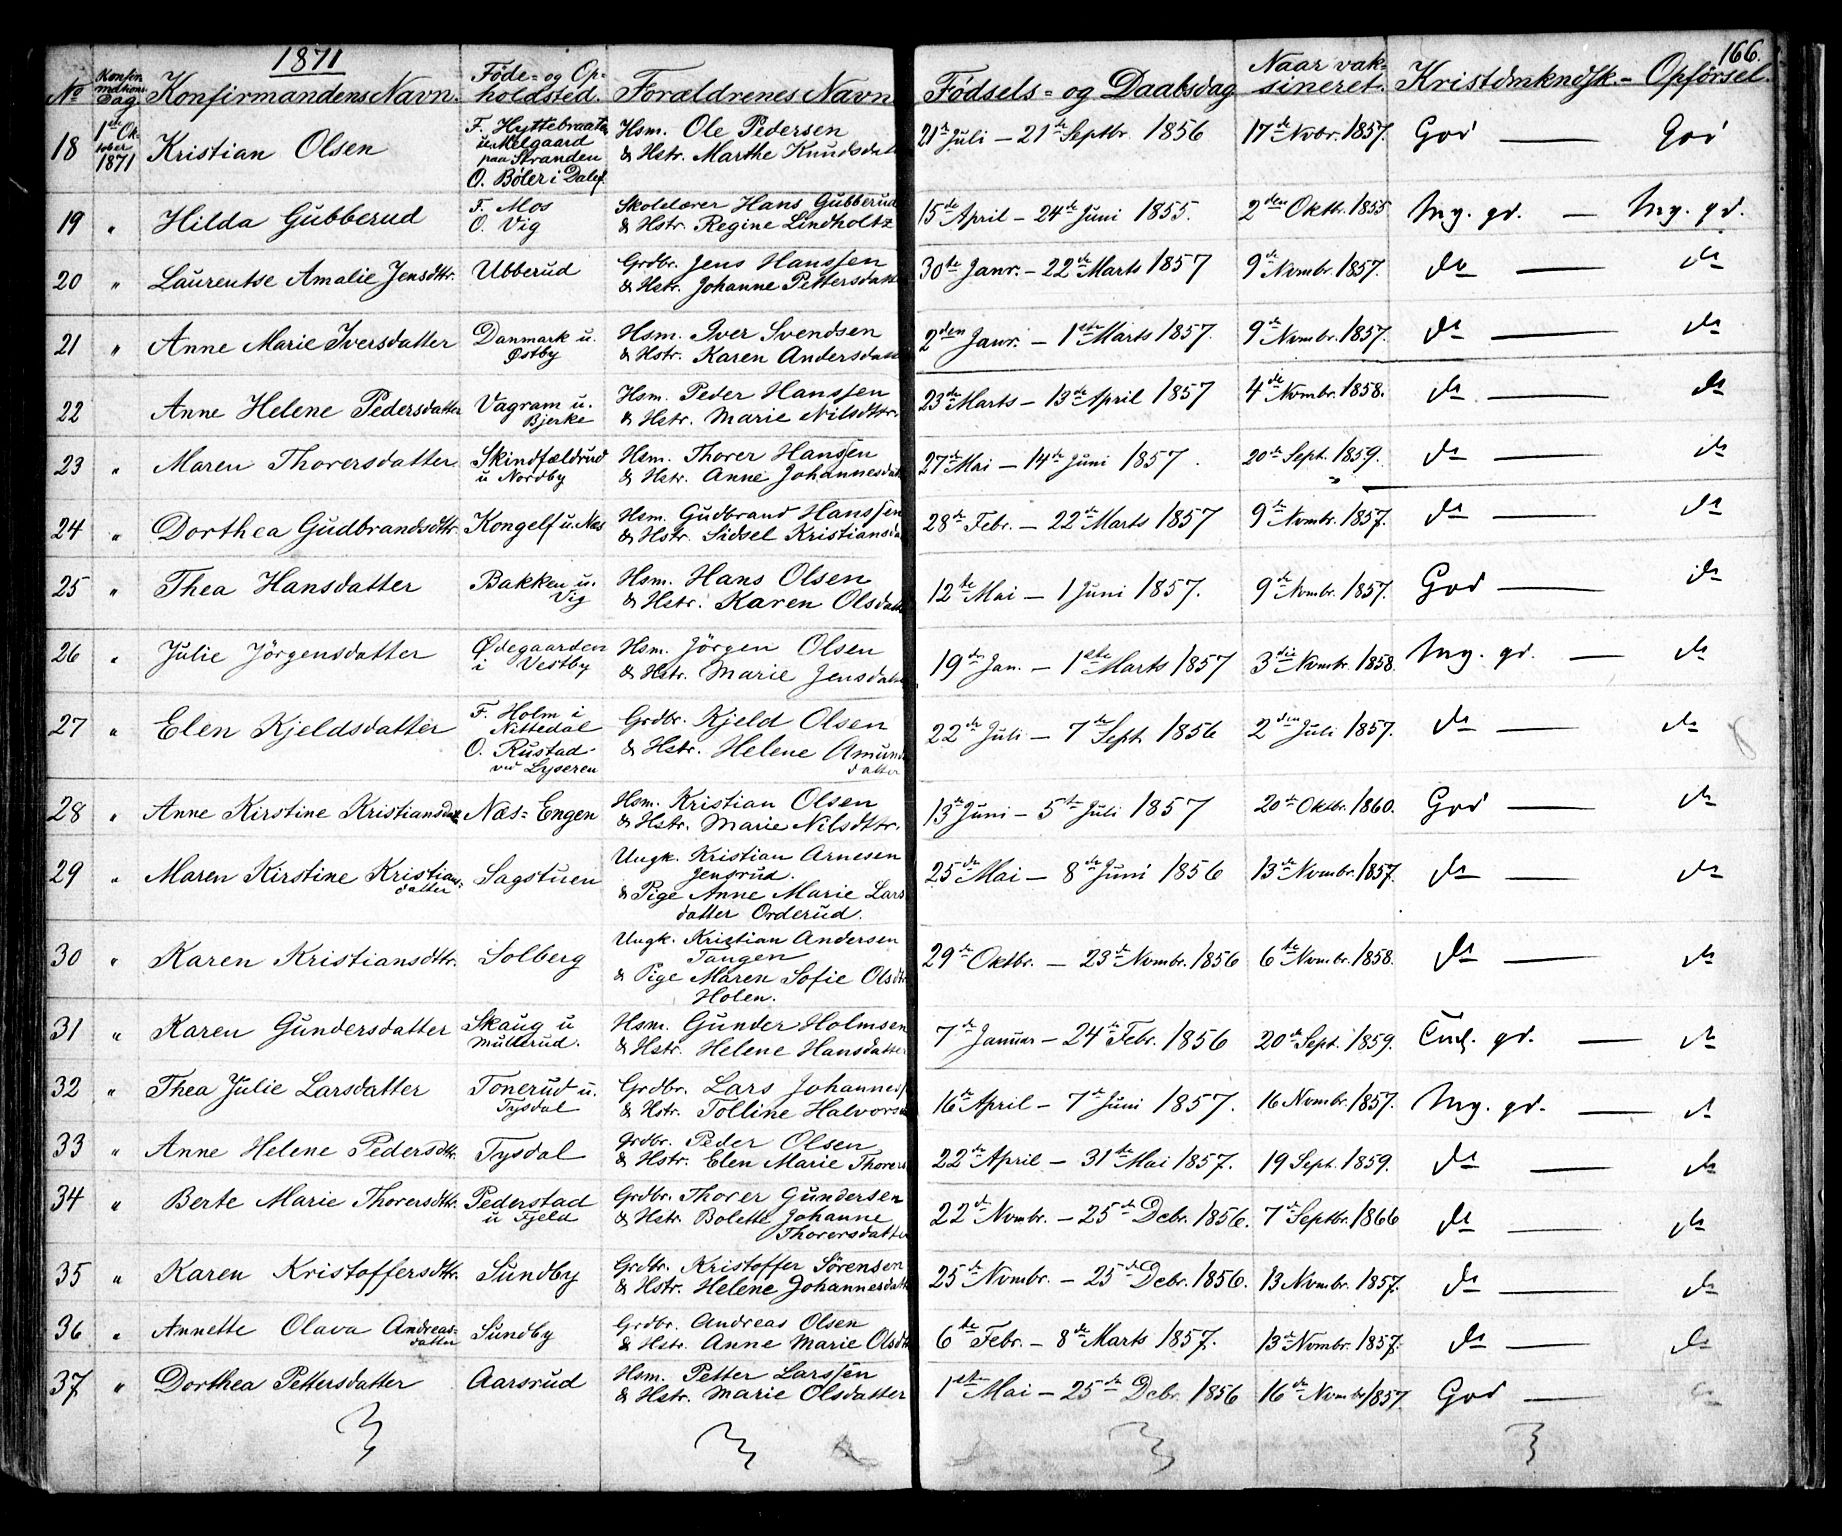 1871
166.
No Konfirmations Dag. Konfirmandens Navn. Føde- og Opholdsted. Forældrenes Navn Fødsels- og Daabsdag Naar vaksineret. Kristdmkndsk. - Opførsel.
18 1ste Oktober 1871 Kristian Olsen F. Hyttebraaten u. Melgaard paa Stranden O. Bøler i Dalef. Hsm. Ole Pedersen & Hstr. Marthe Knudsdatt 21de Juli - 21de Septbr. 1856 17de Novbr. 1857. God — God
19 " Hilda Gubberud F. Mos O. Vig Skolelærer Hans Gubberud & Hstr. Regine Lindholtz 15de April - 24de Juni 1855. 2den Oktbr. 1855 Mg. gd. — Mg. gd.
20 " Laurentse Amalie Jensdttr. Ubberud Grdbr. Jens Hanssen & Hstr. Johanne Pettersdatt 30te Janr. - 22de Marts 1857 9de Novmbr. 1857. do — do
21 " Anne Marie Iversdatter Danmark u. Østby Hsm. Iver Svendsen & Hstr. Karen Andersdatt 2den Janr. - 1ste Marts 1857. 9de Novmbr. 1857. do — do
22 Anne Helene Pedersdatter Vagram u. Bjerke Hsm. Peder Hanssen & Hstr. Marie Nilsdttr. 23de Marts - 13de April 1857 4de Novmbr. 1858. do — do
23 " Maren Thorersdatter Skindfældrud u Nordby Hsm. Thorer Hanssen & Hstr. Anne Johannesdatt 27de Mai - 14de Juni 1857. 20de Sept. 1859. do — do
24 " Dorthea Gudbrandsdttr. Kongelf u. Næs Hsm. Gudbrand Hanssen & Hstr. Sidsel Kristiansda 28de Febr. - 22de Marts 1857 9de Novmbr. 1857. do — do
25 " Thea Hansdatter Bakken u. Vig Hsm. Hans Olsen & Hstr. Karen Olsdatt 12te Mai - 1 Juni 1857. 9de Novmbr. 1857. God — do
26 " Julie Jörgensdatter Ødegaarden i Vestby Hsm. Jörgen Olsen & Hstr. Marie Jensdatt 19de Jan. - 1ste Marts 1857 3die Novmbr. 1858. Mg. gd. — do
27 " Elen Kjeldsdatter F. Holm i Nittedal O. Rustad ved Lyseren Grdbr. Kjeld Olsen & Hstr. Helene Amunds datter 22de Juli - 7de Sept. 1856 2den Juli 1857. do — do
28 " Anne Kirstine Kristiansdat Næs-Engen Hsm. Kristian Olsen & Hstr. Marie Nilsdttr. 13de Juni - 5te Juli 1857 20de Oktbr. 1860. God — do
29 " Maren Kirstine Kristians-datter Sagstuen Ungk. Kristian Arnesen Jensrud. & Pige Anne Marie Lars datter Orderud. 25de Mai - 8de Juni 1856 13de Novmbr. 1857. do — do
30 " Karen Kristiansdttr. Solberg Ungk. Kristian Andersen Tangen & Pige Maren Sofie Olsdtr Holen. 29de Oktbr. - 23de Novmbr. 1856 6te Novmbr. 1858. do — do
31 " Karen Gundersdatter Skaug u Mullerud. Hsm. Gunder Holmsen & Hstr. Helene Hansdatter 7de Januar - 24de Febr. 1856 20de Sept. 1859. gd. — do
32 " Thea Julie Larsdatter Tonerud u. Tysdal Grdbr. Lars Johanness & Hstr. Tolline Halvors 16de April - 7de Juni 1857. 16 Novmbr. 1857. Mg. gd. — do
33 " Anne Helene Pedersdtr. Tysdal Grdbr. Peder Olsen & Hstr. Elen Marie Thorers 22de April - 31de Mai 1857. 19 Sept. 1859. do — do
34 " Berte Marie Thorersdttr. Pederstad u Fjeld Grdbr. Thorer Gundersen & Hstr. Bolette Johanne Thorersdatter 22de Novmbr. - 25de Debr. 1856. 7de Septbr. 1866 do — do
35 " Karen Kristoffersdttr. Sundby Grdbr. Kristoffer Sörensen & Hstr. Helene Johannesdatt 25de Novmbr. - 25de Debr. 1856. 13 Novmbr. 1857. do — do
36 " Annette Olava Andreas-datter Sundby Grdbr. Andreas Olsen & Hstr. Anne Marie Olsdtt 6te Febr. - 8de Marts 1857. 13de Novmbr. 1857. do — do
37 " Dorthea Pettersdatter Aarsrud Hsm. Petter Larssen & Hstr. Marie Olsdatter 1ste Mai - 25de Debr. 1856 16de Novmbr 1857 God —